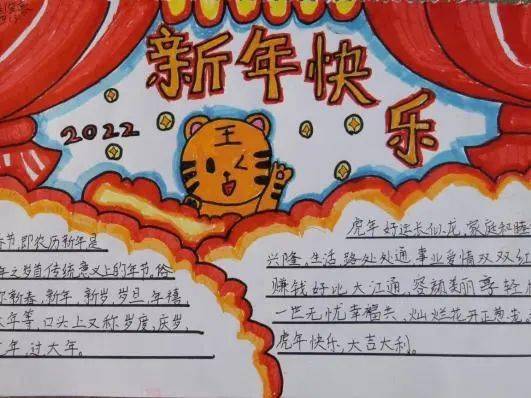 新年快乐
2022
王
春节,即农历新年是
年之岁首传统意义上的年节,俗
你新春、新年、新岁、岁旦、年禧
大年等,口头上又称岁度,庆岁,
年、过大年。
虎年好运长似龙,家庭和睦
兴隆,生活路处处通,事业爱情双双红
赚钱好比大江通,容颜美丽享轻
一世无忧幸福去,灿烂花开正
虎年快乐,大吉大利。